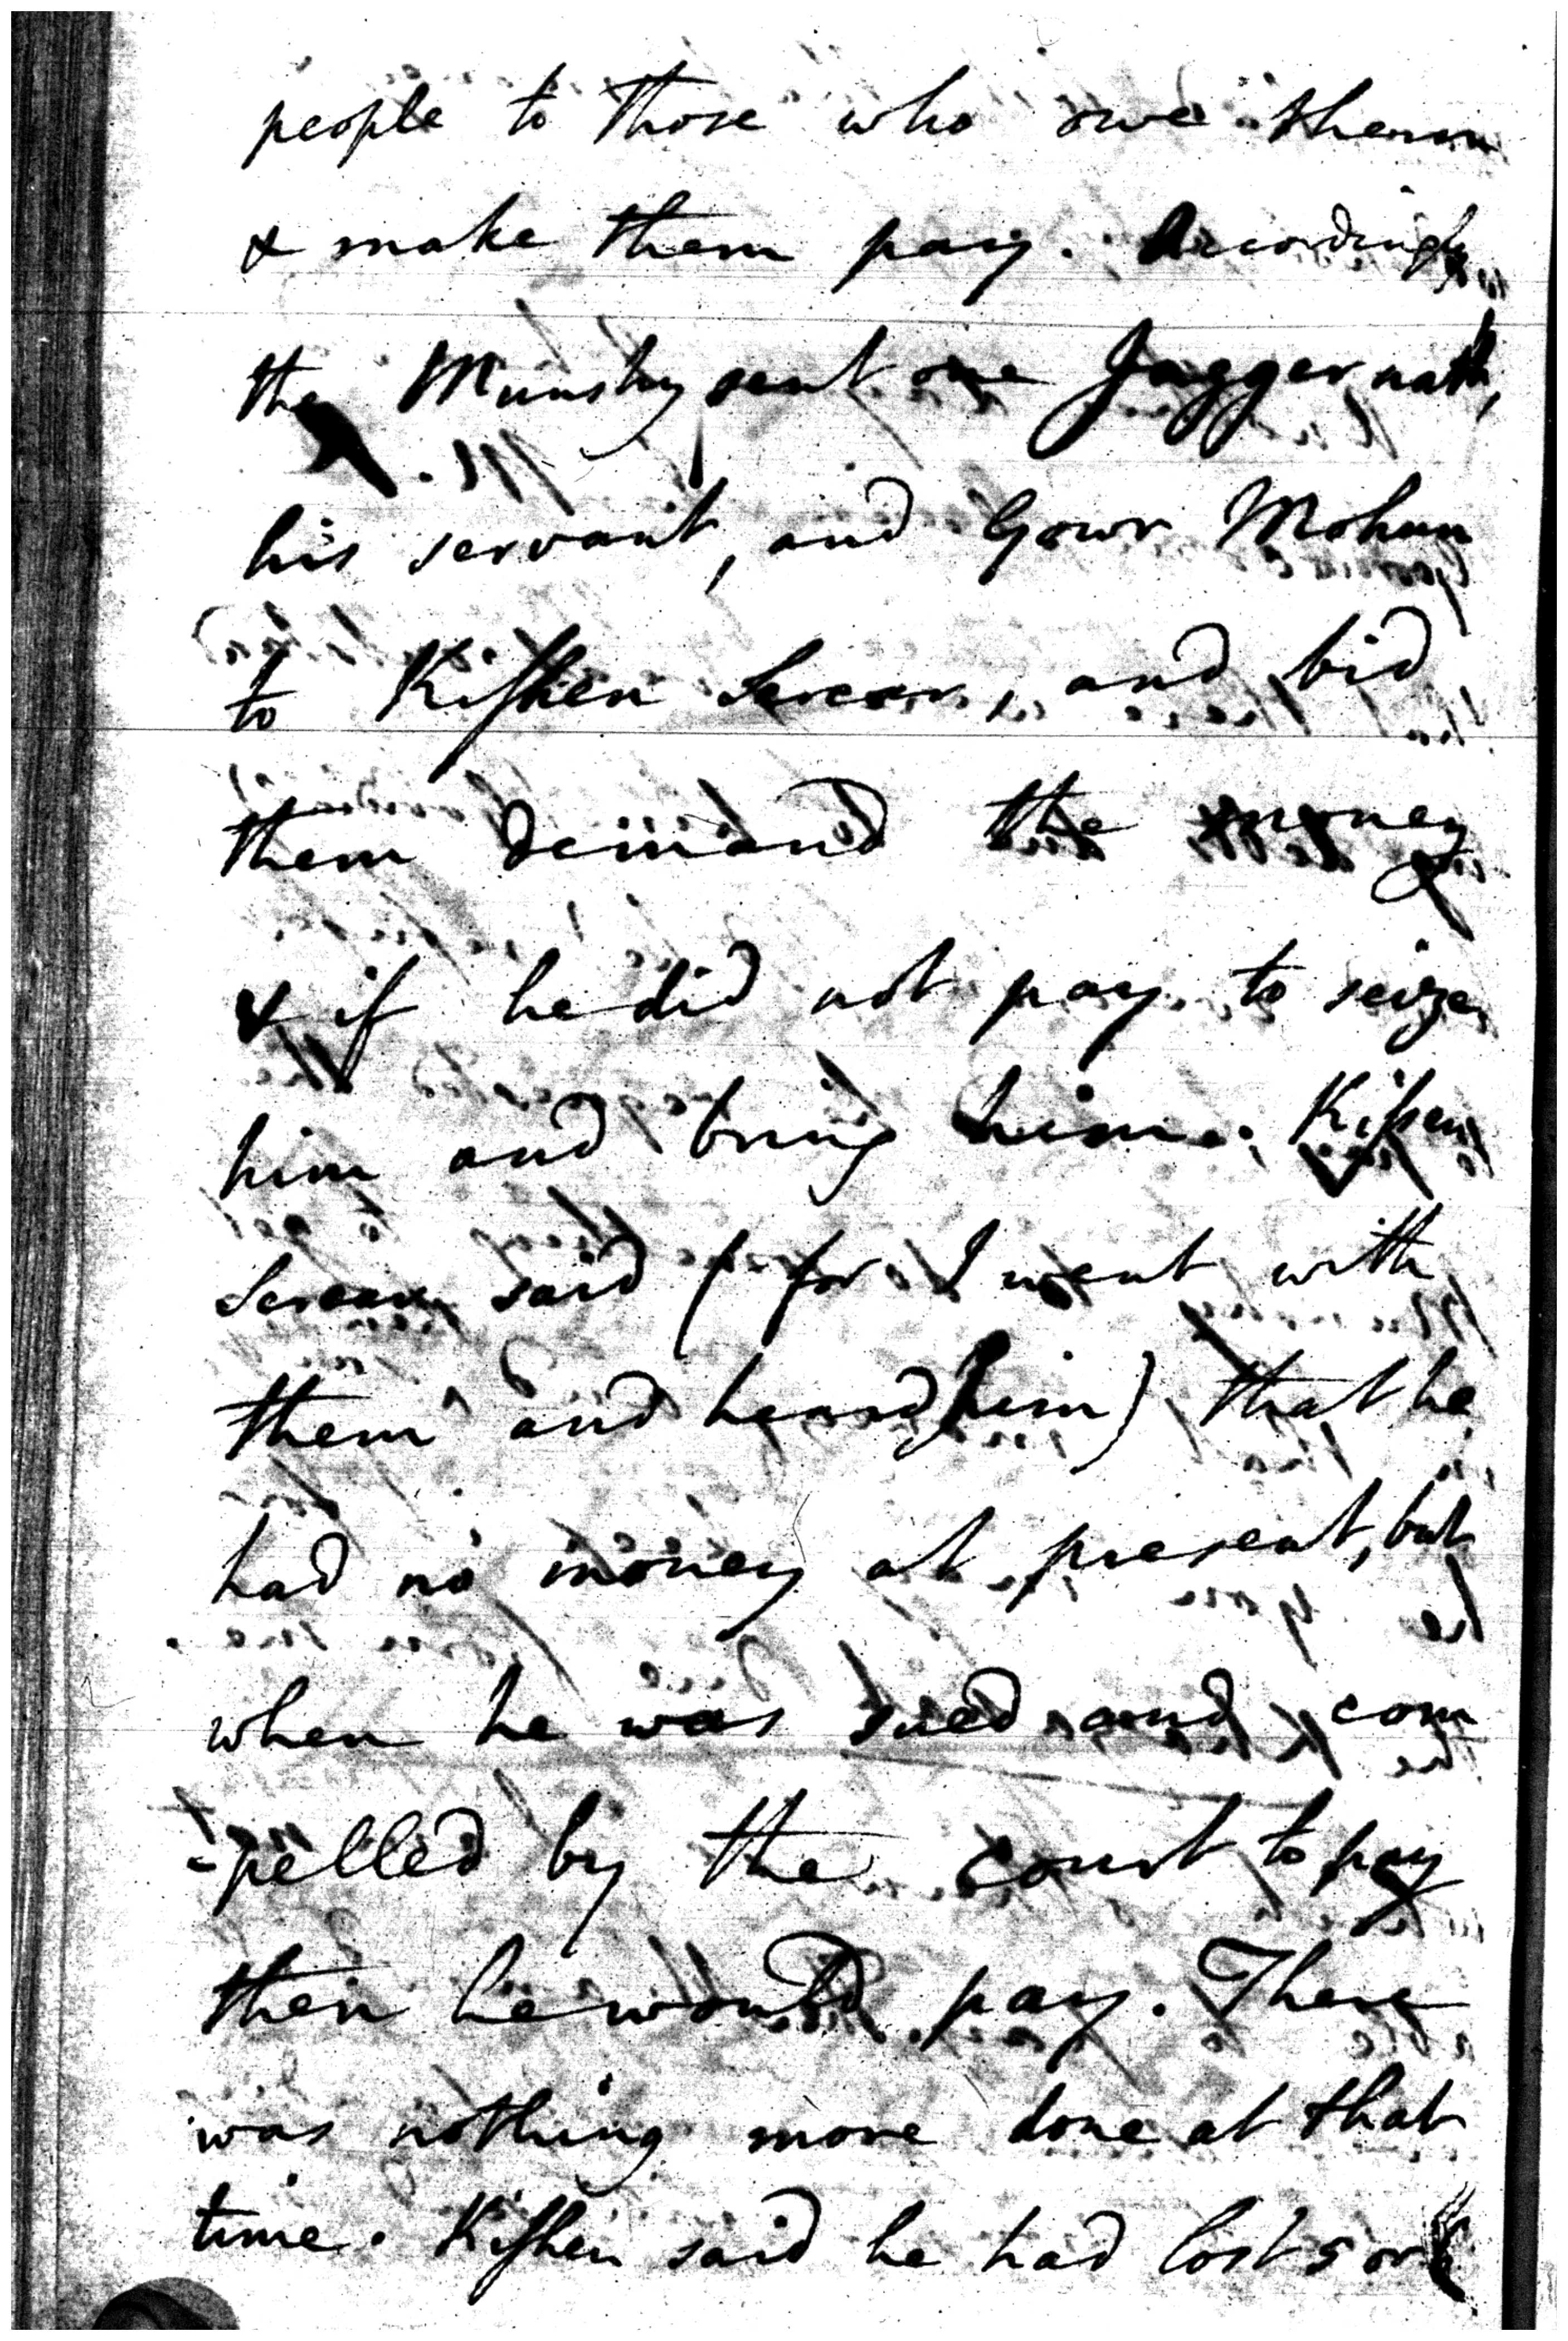 people to those who owe them
& make them pay. Accordingly
the Munshy sent one Jaggernath,
his servant, and Gowr Mohun
to Kishen Sircar, and bid
them demand the money
& if he did not pay to seize
him and bring him. Kishen
Sircar said (for I went with
them and heard him) that he
had no money at present, but
when he was sued and com
-pelled by the court to pay
then he would pay. There
was nothing more done at that
time. Kishen said he had lost 5 or